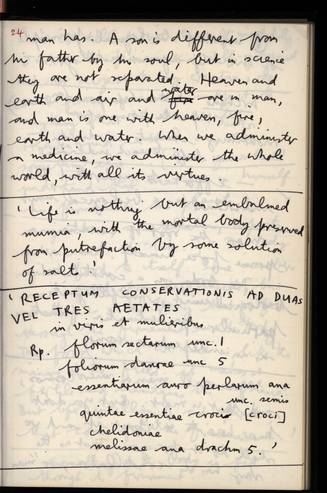 24
man has. A son is different from
his father by his soul, but in science
they are not separated. Heaven and
earth and air and water are in man,
and man is one with heaven, fire,
earth and water. When we administer
a medicine, we administer the whole
world, with all its vertues.
'Life is nothing but an embalmed
mumia, with the mortal body preserved
from putrefaction by some solution
of salt.'
'RECEPTUM CONSERVATIONIS AD DUAS
VEL TRES AETATES
in viris et mulieribus
Rp. florum sectarum unc. 1
foliorum daurae unc 5
essentiarum auro perlarum ana
unc. semis
quintae essentiae crocio [croci]
chelidoniae
melissae ana drachm 5.'